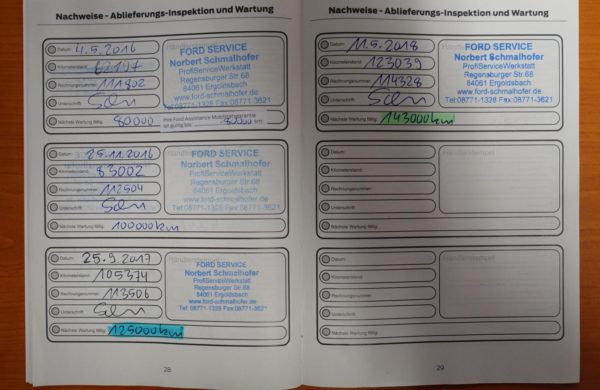 Nachweise - Ablieferungs-Inspektion und Wartung
Datum: 4.5.2016
Kilometerstand:
Rechnungsnummer: 111802
Unterschrift:
Nächste Wartung fällig: 80000
Ihre Ford Assistance Mobilitätsgarantie
ist gültig bis: 80000 km
FORD SERVICE
Norbert Schmalhofer
ProfiServiceWerkstatt
Regensburger Str. 68
84061 Ergoldsbach
www.ford-schmalhofer.de
Tel:08771-1328 Fax:08771-3621
Datum: 25.11.2016
Kilometerstand: 83002
Rechnungsnummer: 112504
Unterschrift:
Nächste Wartung fällig: 100000km
FORD SERVICE
Norbert Schmalhofer
ProfiServiceWerkstatt
Regensburger Str. 68
84061 Ergoldsbach
www.ford-schmalhofer.de
Tel:08771-1328 Fax:08771-3621
Datum: 25.9.2017
Kilometerstand: 105374
Rechnungsnummer: 113506
Unterschrift:
Nächste Wartung fällig: 125000km
Händlerstempel
FORD SERVICE
Norbert Schmalhofer
ProfiServiceWerkstatt
Regensburger Str. 68
84061 Ergoldsbach
www.ford-schmalhofer.de
Tel: 08771-1328 Fax:08771-3621
28
Nachweise - Ablieferungs-Inspektion und Wartung
Datum: 11.5.2018
Kilometerstand: 123039
Rechnungsnummer: 114328
Unterschrift:
Nächste Wartung fällig: 143000km
FORD SERVICE
Norbert Schmalhofer
ProfiServiceWerkstatt
Regensburger Str. 68
84061 Ergoldsbach
www.ford-schmalhofer.de
Tel:08771-1328 Fax:08771-3621
Datum:
Kilometerstand:
Rechnungsnummer:
Unterschrift:
Nächste Wartung fällig:
Händlerstempel
Datum:
Kilometerstand:
Rechnungsnummer:
Unterschrift:
Nächste Wartung fällig:
Händlerstempel
29